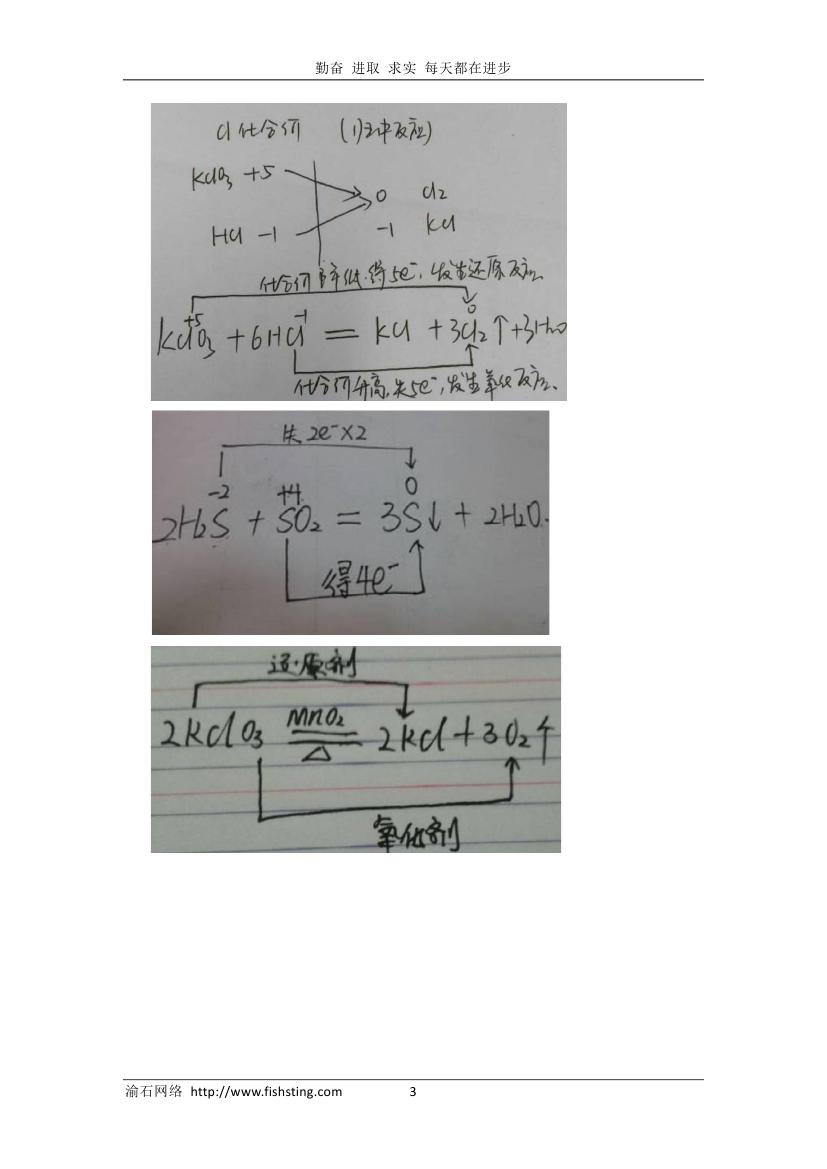 勤奋 进取 求实 每天都在进步
Cl化合价 (归中反应)
KClO3 +5 0 Cl2
HCl -1 -1 KCl
化合价降低.得5e⁻,发生还原反应、
+5 -1 0
KClO3 + 6HCl = KCl + 3Cl2↑+3H2O
化合价升高,失5e⁻,发生氧化反应、
失2e⁻×2
-2 +4 0
2H2S + SO2 = 3S↓ + 2H2O.
得4e⁻
还原剂
MnO2
2KClO3 2KCl+3O2↑
△
氧化剂
渝石网络 http://www.fishsting.com 3